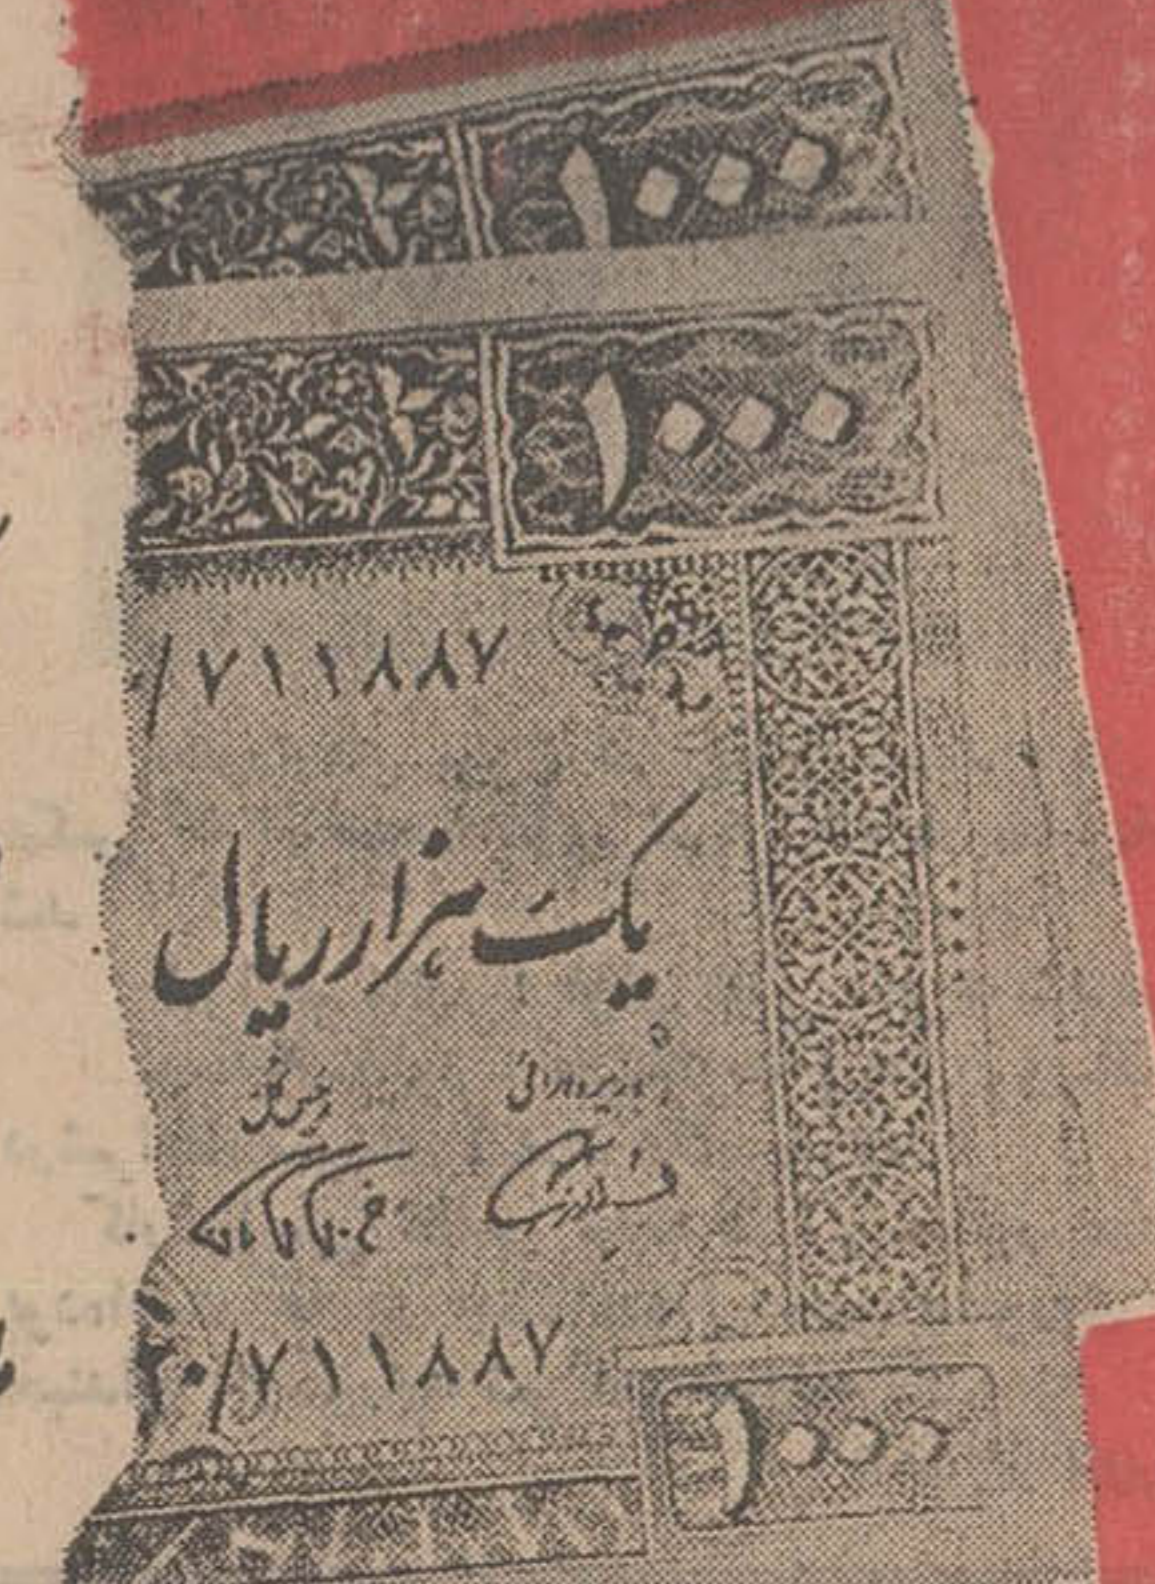 ۱۰۰۰
۱۰۰۰
/۷۱۱۸۸۷
یک هزار ریال
وزیر دارائی
رئیس کل
/۷۱۱۸۸۷
۱۰۰۰